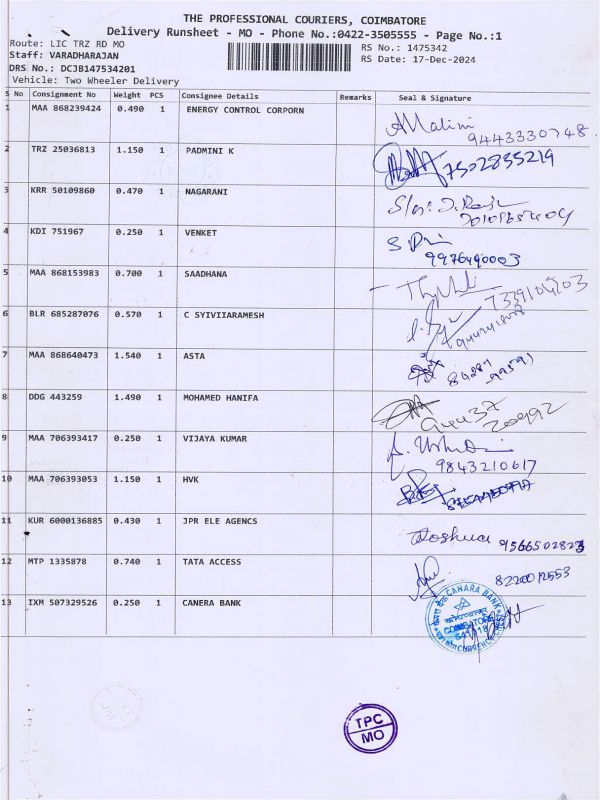 THE PROFESSIONAL COURIERS, COIMBATORE
Delivery Runsheet - MO - Phone No.:0422-3505555 - Page No.:1
Route: LIC TRZ RD MO
RS No.: 1475342
Staff: VARADHARAJAN
RS Date: 17-Dec-2024
DRS No.: DCJB147534201
Vehicle: Two Wheeler Delivery
S No Consignment No Weight PCS Consignee Details Remarks Seal & Signature
1 MAA 868239424 0.490 1 ENERGY CONTROL CORPORN
AMalini
9443330748.
2 TRZ 25036813 1.150 1 PADMINI K
7502835219
3 KRR 50109860 0.470 1 NAGARANI
4 KDI 751967 0.250 1 VENKET
9976490003
5 MAA 868153983 0.700 1 SAADHANA
7339104203
6 BLR 685287076 0.570 1 C SYIVIIARAMESH
7 MAA 868640473 1.540 1 ASTA
8 DDG 443259 1.490 1 MOHAMED HANIFA
9 MAA 706393417 0.250 1 VIJAYA KUMAR
9843210617
10 MAA 706393053 1.150 1 HVK
11 KUR 6000136885 0.430 1 JPR ELE AGENCS
Joshua 9566502823
12 MTP 1335878 0.740 1 TATA ACCESS
8220012553
13 IXM 507329526 0.250 1 CANERA BANK
CANARA BANK
COIMBATORE
TPC
MO